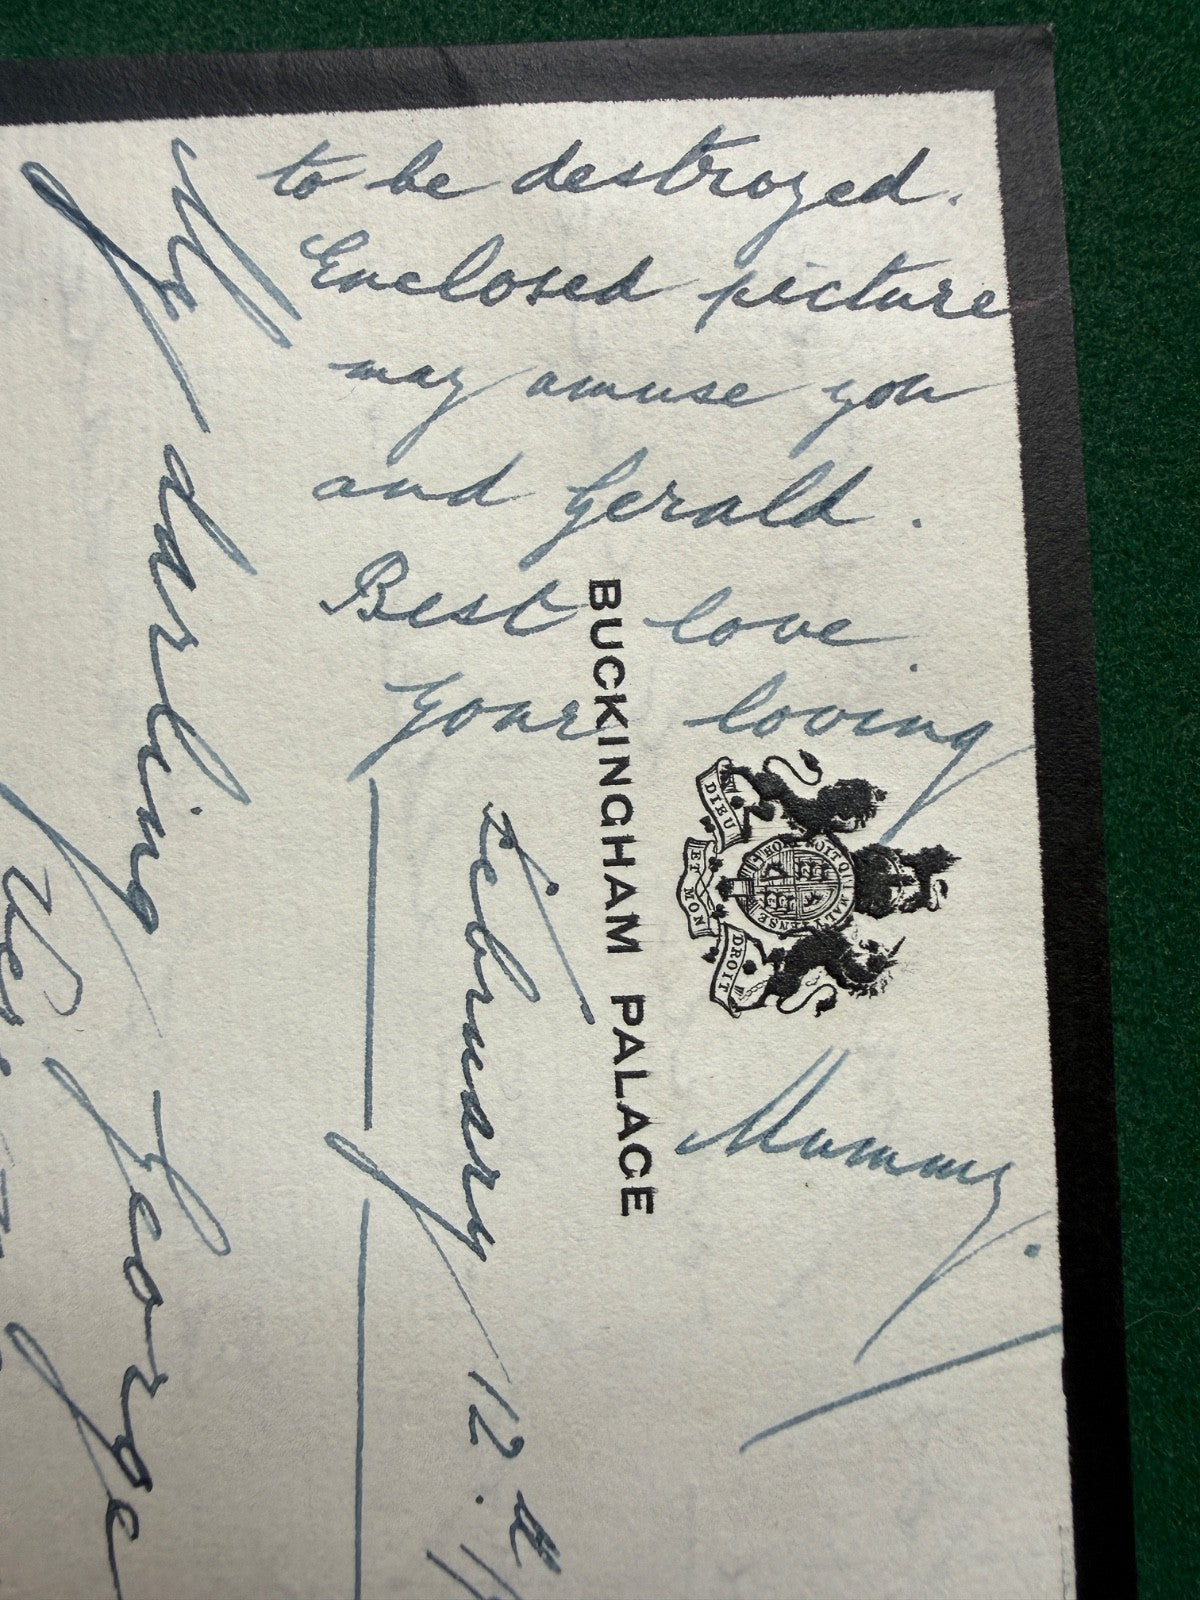 to be destroyed.
Enclosed picture
may amuse you
and Gerald.
Best love.
Your loving
Mummy.
DIEU ET MON DROIT
HONI SOIT QUI MAL Y PENSE
BUCKINGHAM PALACE
February 12.
My darling George